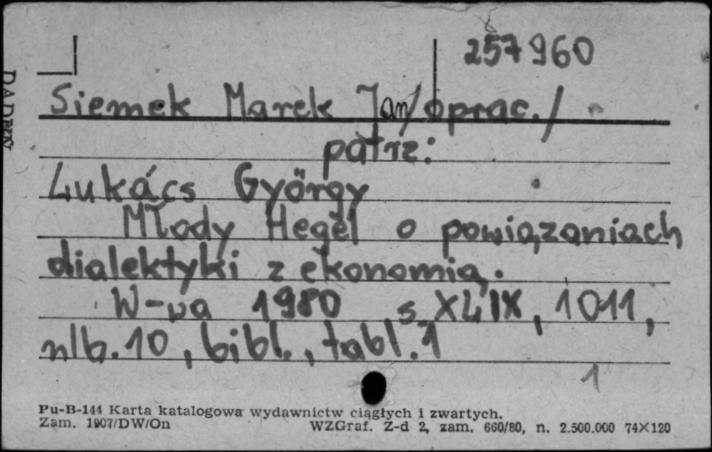 257960
Siemek Marek Jan/oprac./
patrz:
Lukács György
Młody Hegel o powiązaniach
dialektyki z ekonomią.
W-wa 1980 s. XLIX, 1011,
nlb. 10, bibl., tabl. 1
1
Pu-B-144 Karta katalogowa wydawnictw ciągłych i zwartych.
Zam. 1907/DW/On WZGraf. Z-d 2, zam. 660/80, n. 2.500.000 74×120